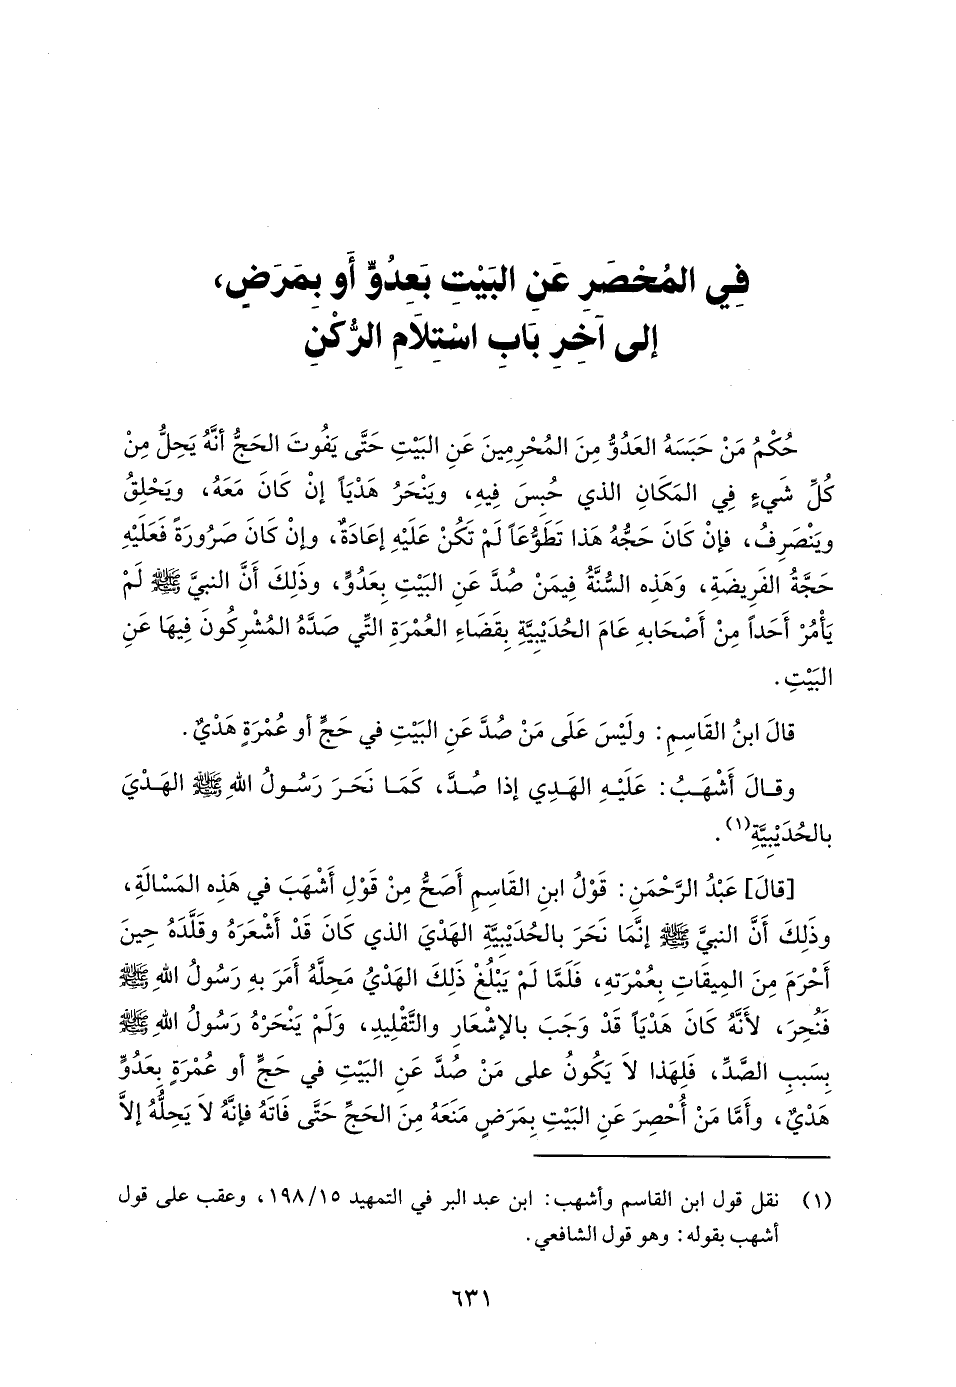 فِي المُحْصَرِ عَنِ البَيْتِ بَعِدُوٍّ أَو بِمَرَضٍ،
إلى آخِرِ بَابِ اسْتِلَامِ الرُّكْنِ
حُكْمُ مَنْ حَبَسَهُ العَدُوُّ مِنَ المُحْرِمِينَ عَنِ البَيْتِ حَتَّى يَفُوتَ الحَجُّ أنَّهُ يَحِلُّ مِنْ
كُلِّ شَيءٍ فِي المَكَانِ الذي حُبِسَ فِيهِ، ويَنْحَرُ هَدْيَاً إنْ كَانَ مَعَهُ، ويَحْلِقُ
ويَنْصَرِفُ، فإنْ كَانَ حَجُّهُ هَذا تَطَوُّعَاً لَمْ تَكُنْ عَلَيْهِ إعَادَةٌ، وإنْ كَانَ صَرُورَةً فَعَلَيْهِ
حَجَّةُ الفَرِيضَةِ، وَهَذِه السُّنَّةُ فِيمَنْ صُدَّ عَنِ البَيْتِ بِعَدُوٍّ، وذَلِكَ أَنَّ النبيَّ ﷺ لَمْ
يَأْمُرْ أَحَداً مِنْ أَصْحَابهِ عَامَ الحُدَيْبِيَّةِ بِقَضَاءِ العُمْرَةِ التِّي صَدَّهُ المُشْرِكُونَ فِيهَا عَنِ
البَيْتِ.
قالَ ابنُ القَاسِمِ: ولَيْسَ عَلَى مَنْ صُدَّ عَنِ البَيْتِ في حَجٍّ أو عُمْرَةٍ هَدْيٌ.
وقـالَ أَشْهَـبُ: عَلَيْـهِ الهَـدِي إذا صُـدَّ، كَمَـا نَحَـرَ رَسُـولُ اللهِ ﷺ الهَـدْيَ
بالحُدَيْبِيَّةِ(١).
[قالَ] عَبْدُ الرَّحْمَنِ: قَوْلُ ابنِ القَاسِمِ أَصَحُّ مِنْ قَوْلِ أَشْهَبَ في هَذِه المَسْالَةِ،
وذَلِكَ أَنَّ النبيَّ ﷺ إنَّمَا نَحَرَ بالحُدَيْبِيَّةِ الهَدْيَ الذي كَانَ قَدْ أَشْعَرَهُ وقَلَّدَهُ حِينَ
أَحْرَمَ مِنَ المِيقَاتِ بِعُمْرَتهِ، فَلَمَّا لَمْ يَبْلُغْ ذَلِكَ الهَدْيُ مَحِلَّهُ أَمَرَ بهِ رَسُولُ اللهِ ﷺ
فَنُحِرَ، لأَنَّهُ كَانَ هَدْيَاً قَدْ وَجَبَ بالإشْعَارِ والتَّقْلِيدِ، ولَمْ يَنْحَرْهُ رَسُولُ اللهِ ﷺ
بِسَببِ الصَّدِّ، فَلِهَذا لاَ يَكُونُ على مَنْ صُدَّ عَنِ البَيْتِ في حَجٍّ أو عُمْرَةٍ بِعَدُوٍّ
هَدْيٌ، وأَمَّا مَنْ أُحْصِرَ عَنِ البَيْتِ بِمَرَضٍ مَنَعَهُ مِنَ الحَجِّ حَتَّى فَاتَهُ فإنَّهُ لاَ يَحِلُّهُ إلاَّ
(١) نقل قول ابن القاسم وأشهب: ابن عبد البر في التمهيد ١٩٨/١٥، وعقب على قول
أشهب بقوله: وهو قول الشافعي.
٦٣١